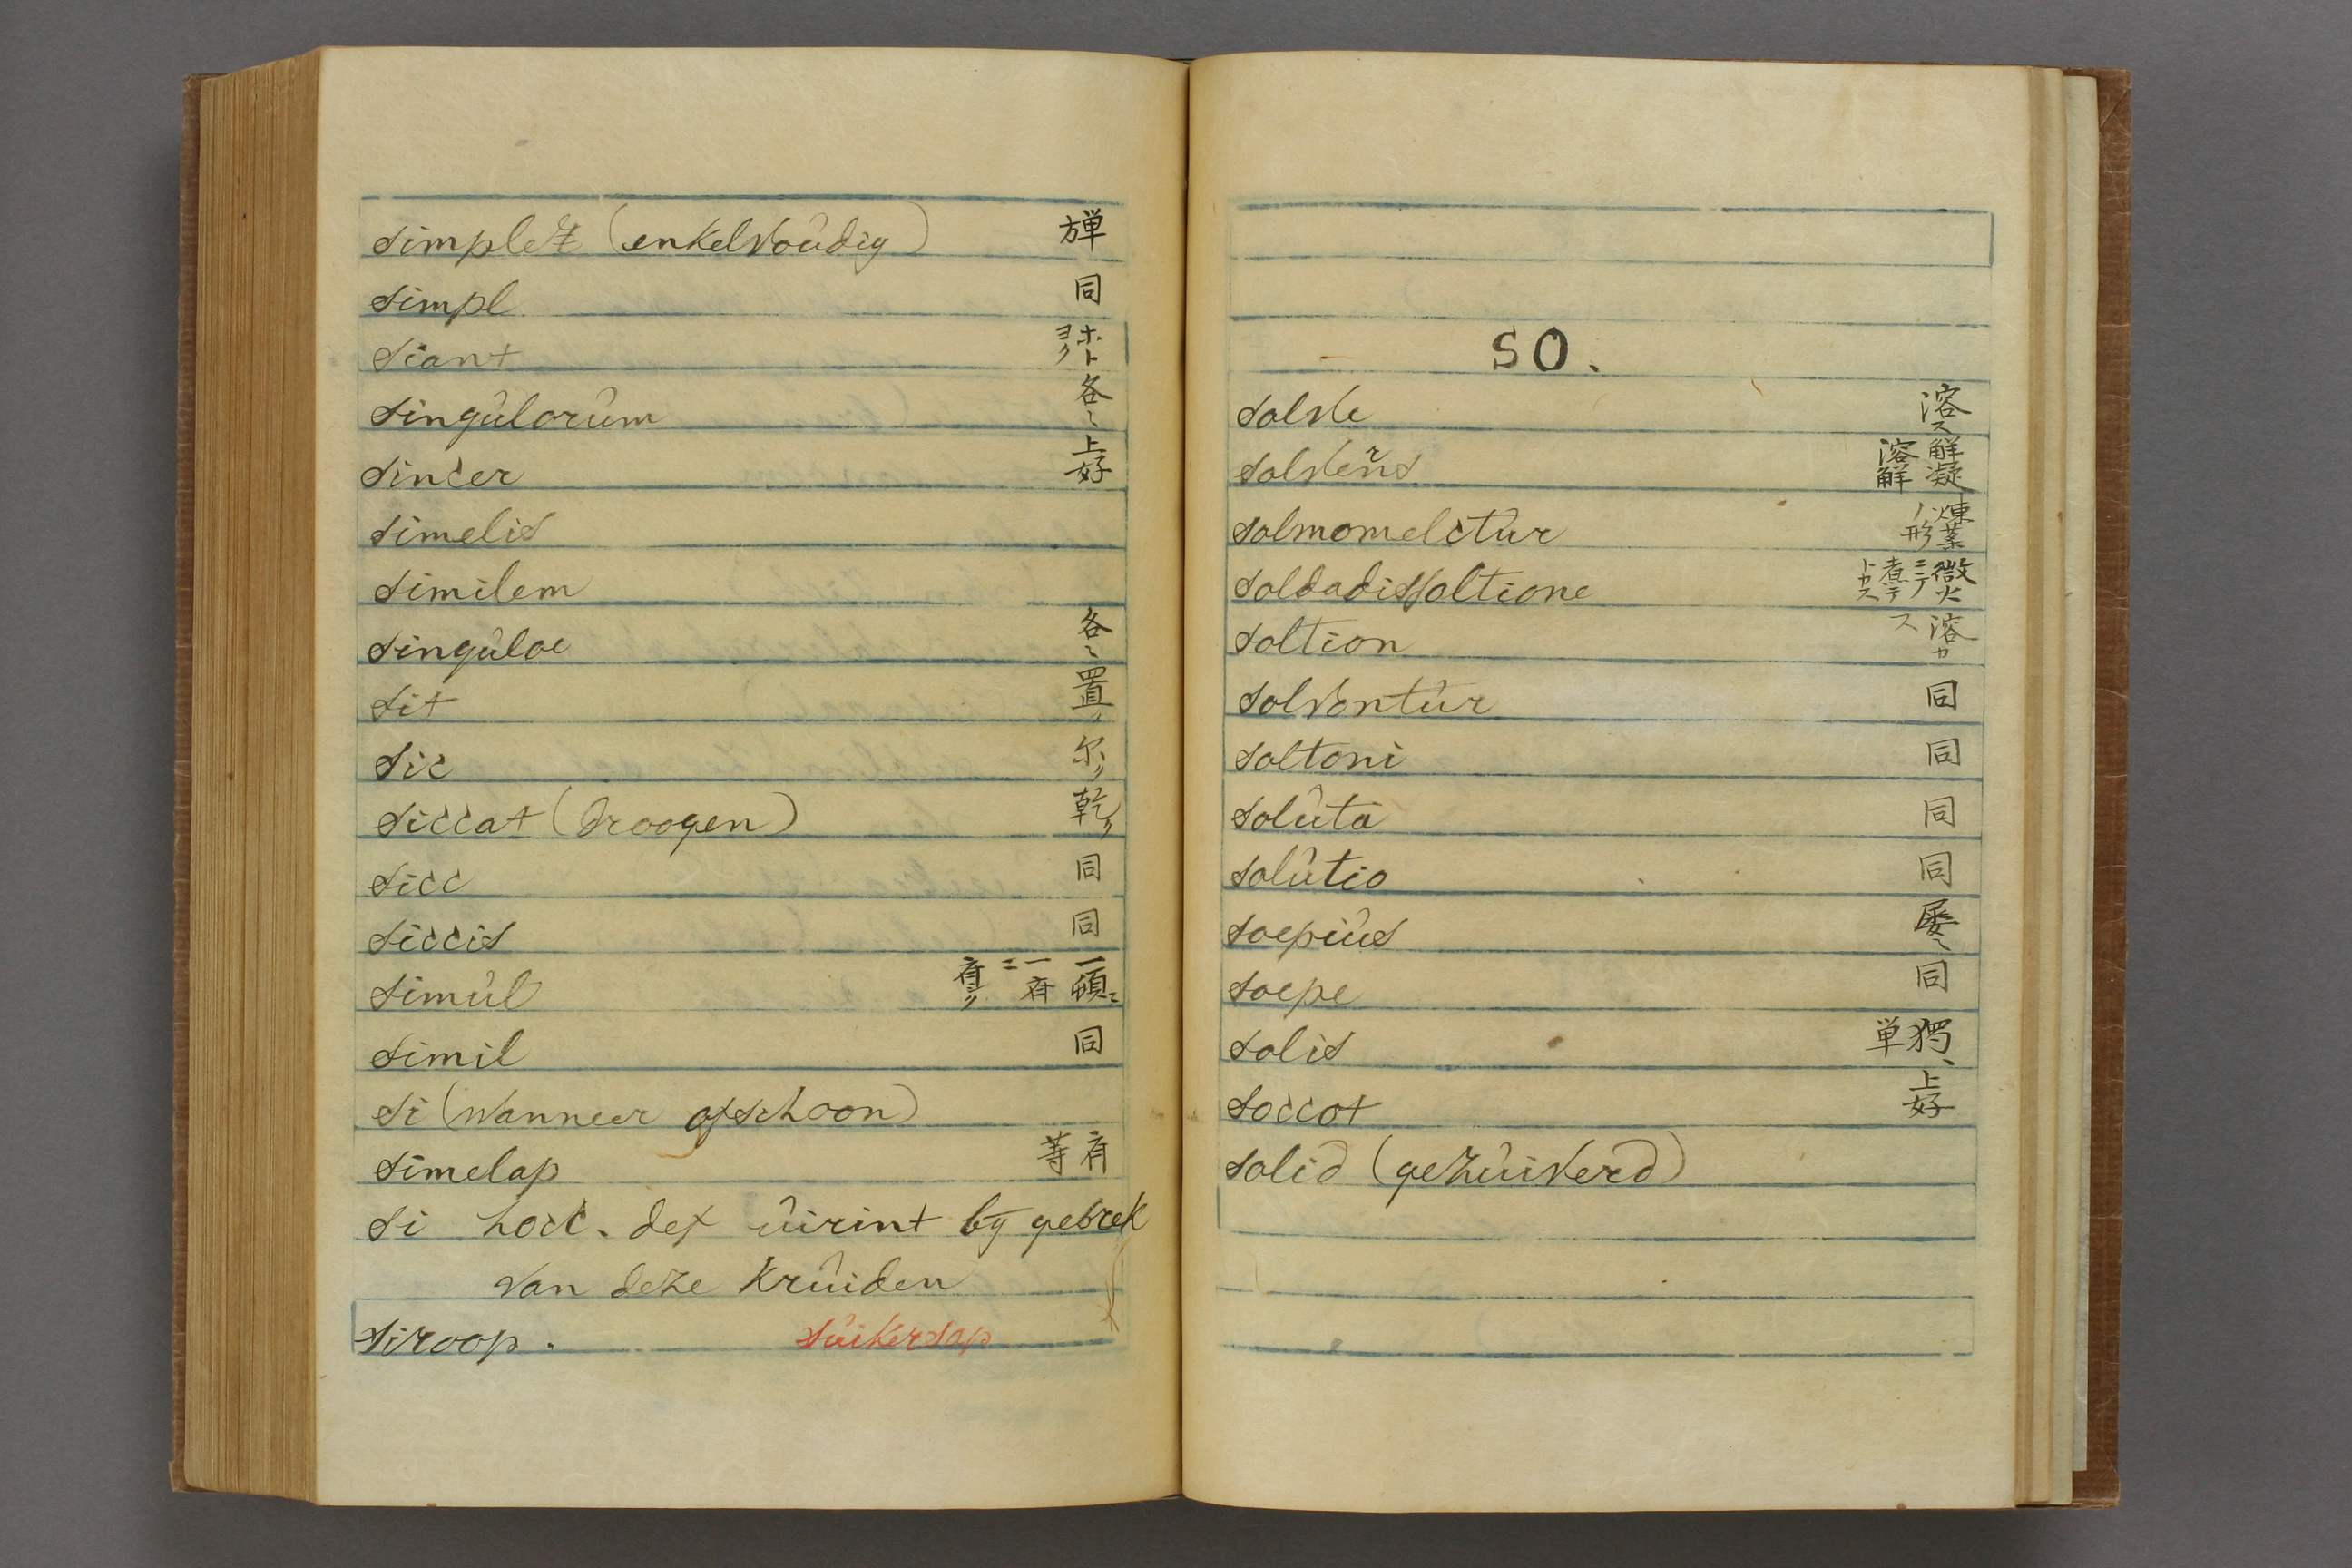 simplex (enkelvoûdig) 単方
simpl 同
siant ホトヨク
singûlorûm 各〻
sincer 上好
simelis
similem
singûloe 各〻
sit 置ク
sic 尓ク
siccat (droogen) 乾ク
sicc 同
siccis 同
simûl 一頓ニ 一斉ニ 斉シク
simil 同
si (wanneer ofschoon)
simelap 斉等
si hocc. def ûirint bÿ gebrek
van deze krûiden
siroop. sûikersap
SO.
solve 溶ス
solvens 解凝 溶解
solmomelctûr 煉薬ノ形
soldadissoltione 微火ニテ煮テトカス
soltion 溶カス
solvontûr 同
soltoni 同
solûta 同
solûtio 同
soepiûs 屡〻
soepe 同
solis 獨、単
soccot 上好
solid (gezûiverd)